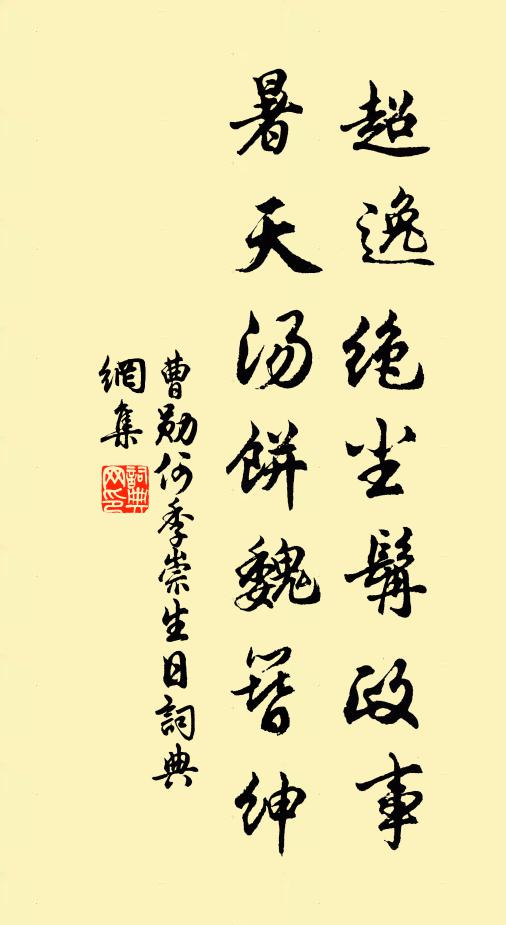 超逸绝尘髯政事
暑天汤饼魏簪绅
曹勋何季崇生日詞典
網集
詞典
网印